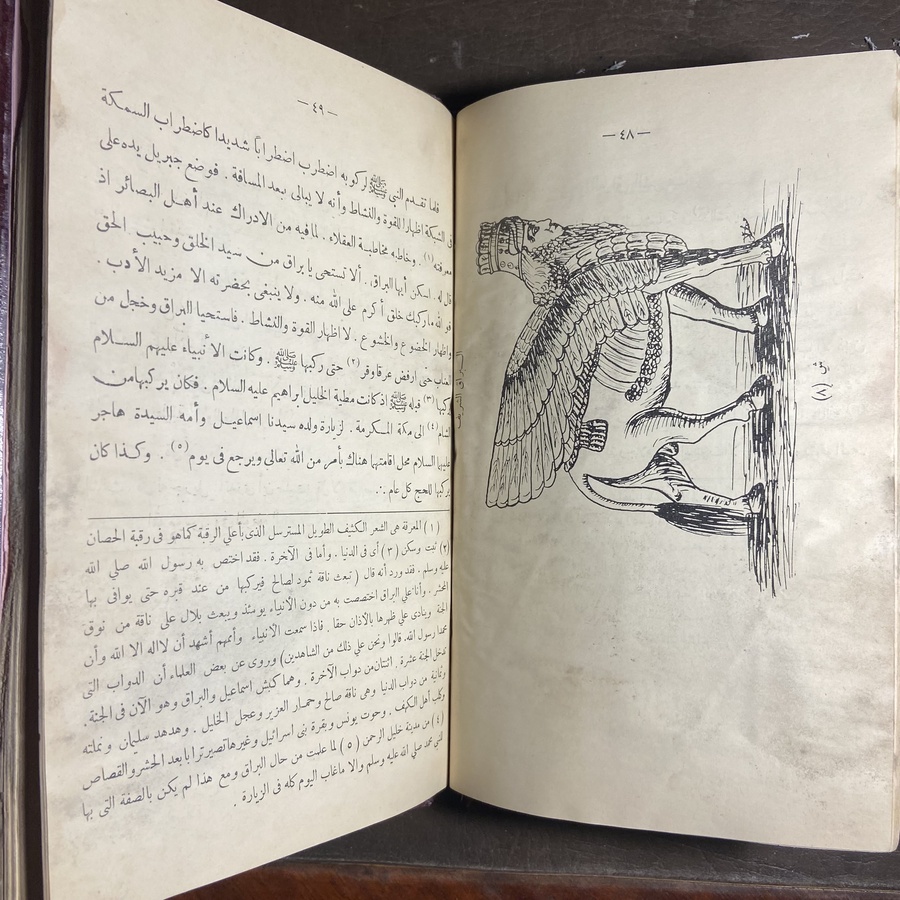 — ٤٨ —
ش (٨)
— ٤٩ —
فلما تقدم النبي ﷺ لركوبه اضطرب اضطراباً شديدا كاضطراب السمكة
في الشبكة اظهارا للقوة والنشاط وأنه لا يبالى ببعد المسافة . فوضع جبريل يده على
معرفته (١) . وخاطبه مخاطبة العقلاء . لما فيه من الادراك عند أهل البصائر اذ
قال له . اسكن أيها البراق . ألا تستحى يا براق من سيد الخلق وحبيب الحق
فوالله ما ركبك خلق أكرم على الله منه . ولا ينبغى بحضرته الا مزيد الأدب .
واظهار الخضوع والخشوع . لا اظهار القوة والنشاط . فاستحيا البراق وخجل من
العتاب حتى ارفض عرقا وقر (٢) حتى ركبها ﷺ . وكانت الأنبياء عليهم السلام
يركبها (٣) قبله ﷺ اذ كانت مطية الخليل ابراهيم عليه السلام . فكان يركبها من
الشام (٤) الى مكة المكرمة . لزيارة ولده سيدنا اسماعيل وأمه السيدة هاجر
عليها السلام محل اقامتها هناك بأمر من الله تعالى ويرجع فى يوم (٥) . وكذا كان
يركبها للحج كل عام ∴
(١) المعرفة هى الشعر الكثيف الطويل المسترسل الذى بأعلي الرقبة كما هو فى رقبة الحصان
(٢) ثبت وسكن (٣) أى فى الدنيا . وأما فى الآخرة . فقد اختص به رسول الله صلي الله
عليه وسلم . فقد ورد أنه قال ( تبعث ناقة ثمود لصالح فيركبها من عند قبره حتى يوافى بها
المحشر . وأنا علي البراق اختصصت به من دون الأنبياء يومئذ ويبعث بلال على ناقة من نوق
الجنة وينادى علي ظهرها بالآذان حقا . فاذا سمعت الأنبياء وأممهم أشهد أن لا اله الا الله وأن
محمدا رسول الله. قالوا ونحن علي ذلك من الشاهدين) وروى عن بعض العلماء أن الدواب التى
تدخل الجنة عشرة . اثنتان من دواب الآخرة . وهما كبش اسماعيل والبراق وهو الآن فى الجنة.
وثمانية من دواب الدنيا وهى ناقة صالح وحمار العزير وعجل الخليل . وهدهد سليمان ونملته
وكلب أهل الكهف . وحوت يونس وبقرة بنى اسرائيل وغيرها تصير ترابا بعد الحشر والقصاص
(٤) من مدينة خليل الرحمن (٥) لما علمت من حال البراق ومع هذا لم يكن بالصفة التى بها
للنبي محمد صلي الله عليه وسلم والا ما غاب اليوم كله فى الزيارة .